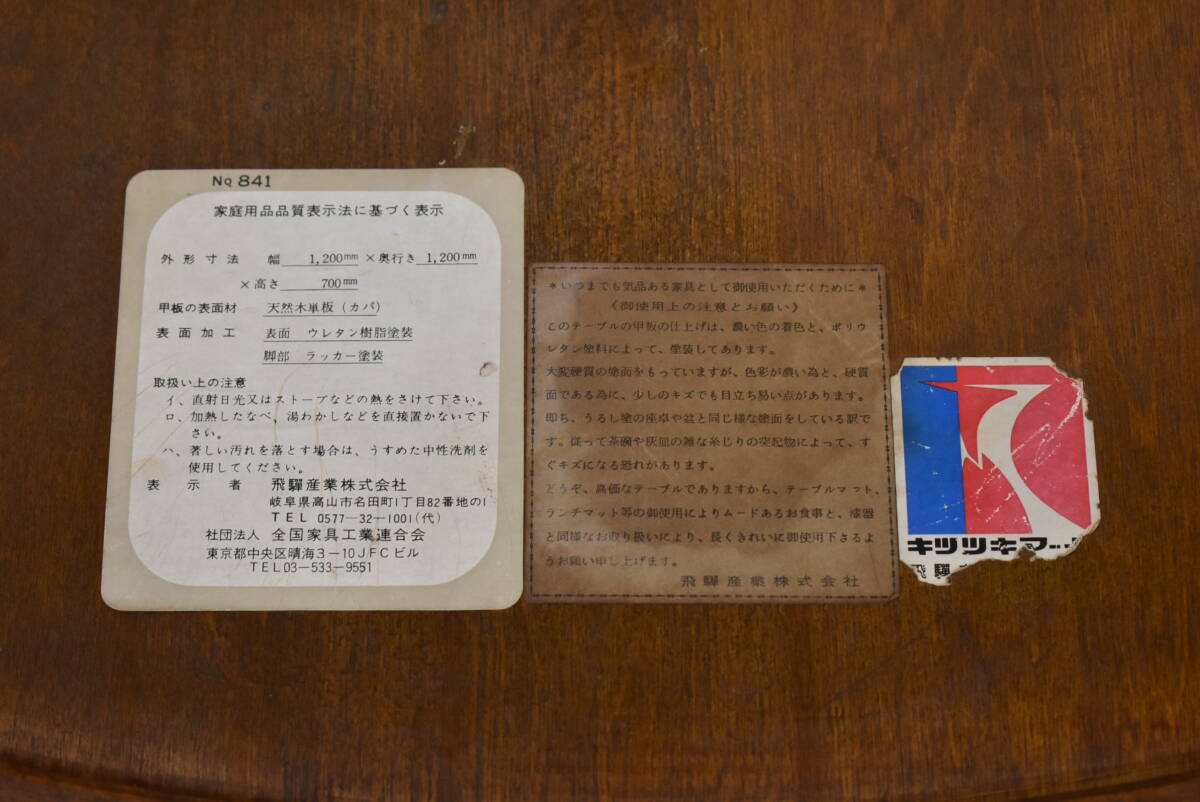 No 841
家庭用品品質表示法に基づく表示
外形寸法 幅 1,200mm ×奥行き 1,200mm
×高さ 700mm
甲板の表面材 天然木単板（カバ）
表面加工 表面 ウレタン樹脂塗装
脚部 ラッカー塗装
取扱い上の注意
イ、直射日光又はストーブなどの熱をさけて下さい。
ロ、加熱したなべ、湯わかしなどを直接置かないで下
さい。
ハ、著しい汚れを落とす場合は、うすめた中性洗剤を
使用してください。
表示者 飛驒産業株式会社
岐阜県高山市名田町1丁目82番地の1
TEL 0577-32-1001(代)
社団法人 全国家具工業連合会
東京都中央区晴海3-10JFCビル
TEL03-533-9551
＊いつまでも気品ある家具として御使用いただくために＊
《御使用上の注意とお願い》
このテーブルの甲板の仕上げは、濃い色の着色と、ポリウ
レタン塗料によって、塗装してあります。
大変硬質の塗面をもっていますが、色彩が濃い為と、硬質
面である為に、少しのキズでも目立ち易い点があります。
即ち、うるし塗の座卓や盆と同じ様な塗面をしている訳で
す。従って茶碗や灰皿の雑な糸じりの突起物によって、す
ぐキズになる恐れがあります。
どうぞ、高価なテーブルでありますから、テーブルマット、
ランチマット等の御使用によりムードあるお食事と、漆器
と同様なお取り扱いにより、長くきれいに御使用下さるよ
うお願い申し上げます。
飛驒産業株式会社
キツツキマー
飛驒